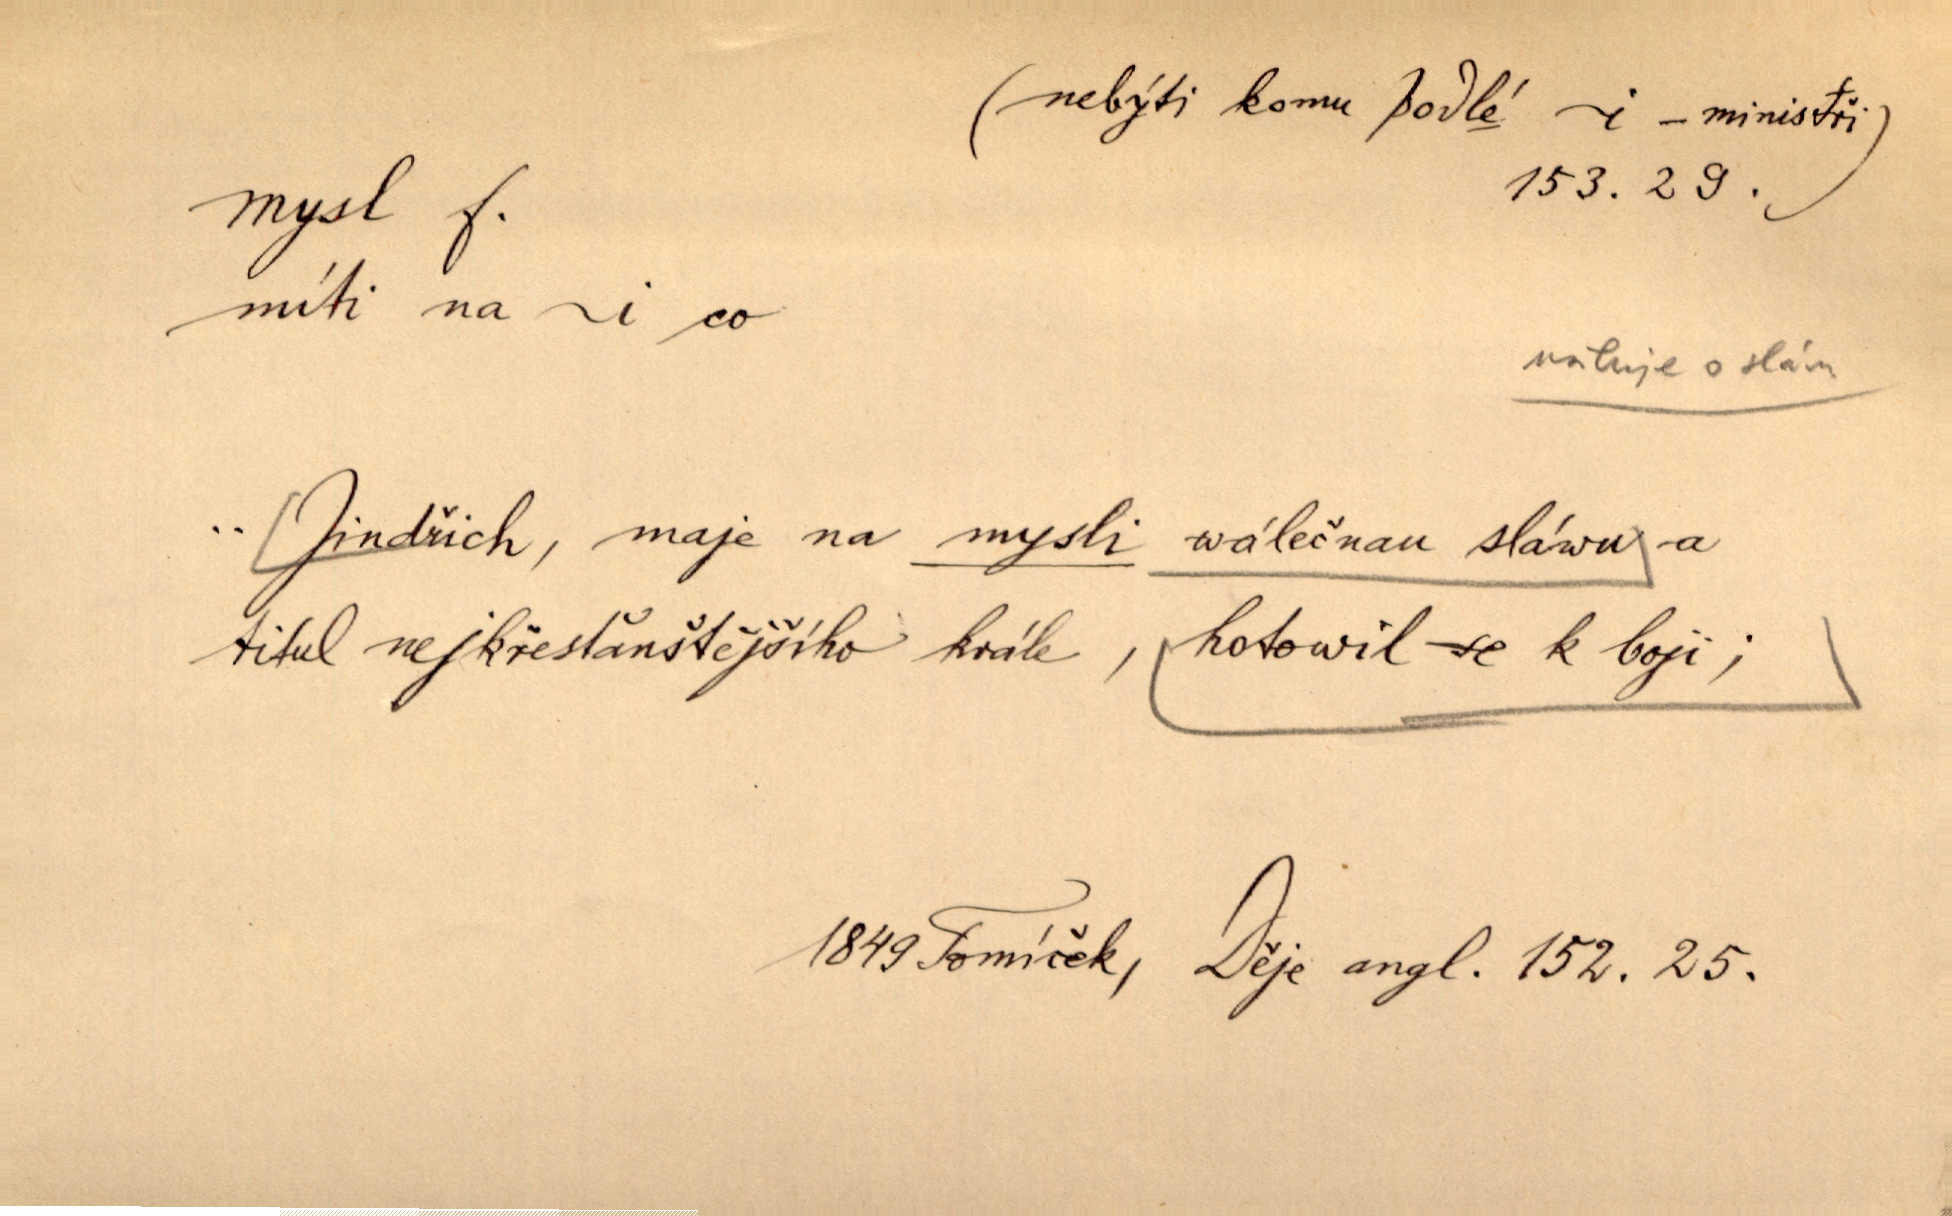 (nebýti komu podlé ~i – ministři
153. 29.)
mysl f.
míti na ~i co
usiluje o sláv
.. Jindřich, maje na mysli wálečnau sláwu a
titul nejkřesťanštějšího krále, hotowil se k boji;
1849 Tomíček, Děje angl. 152. 25.